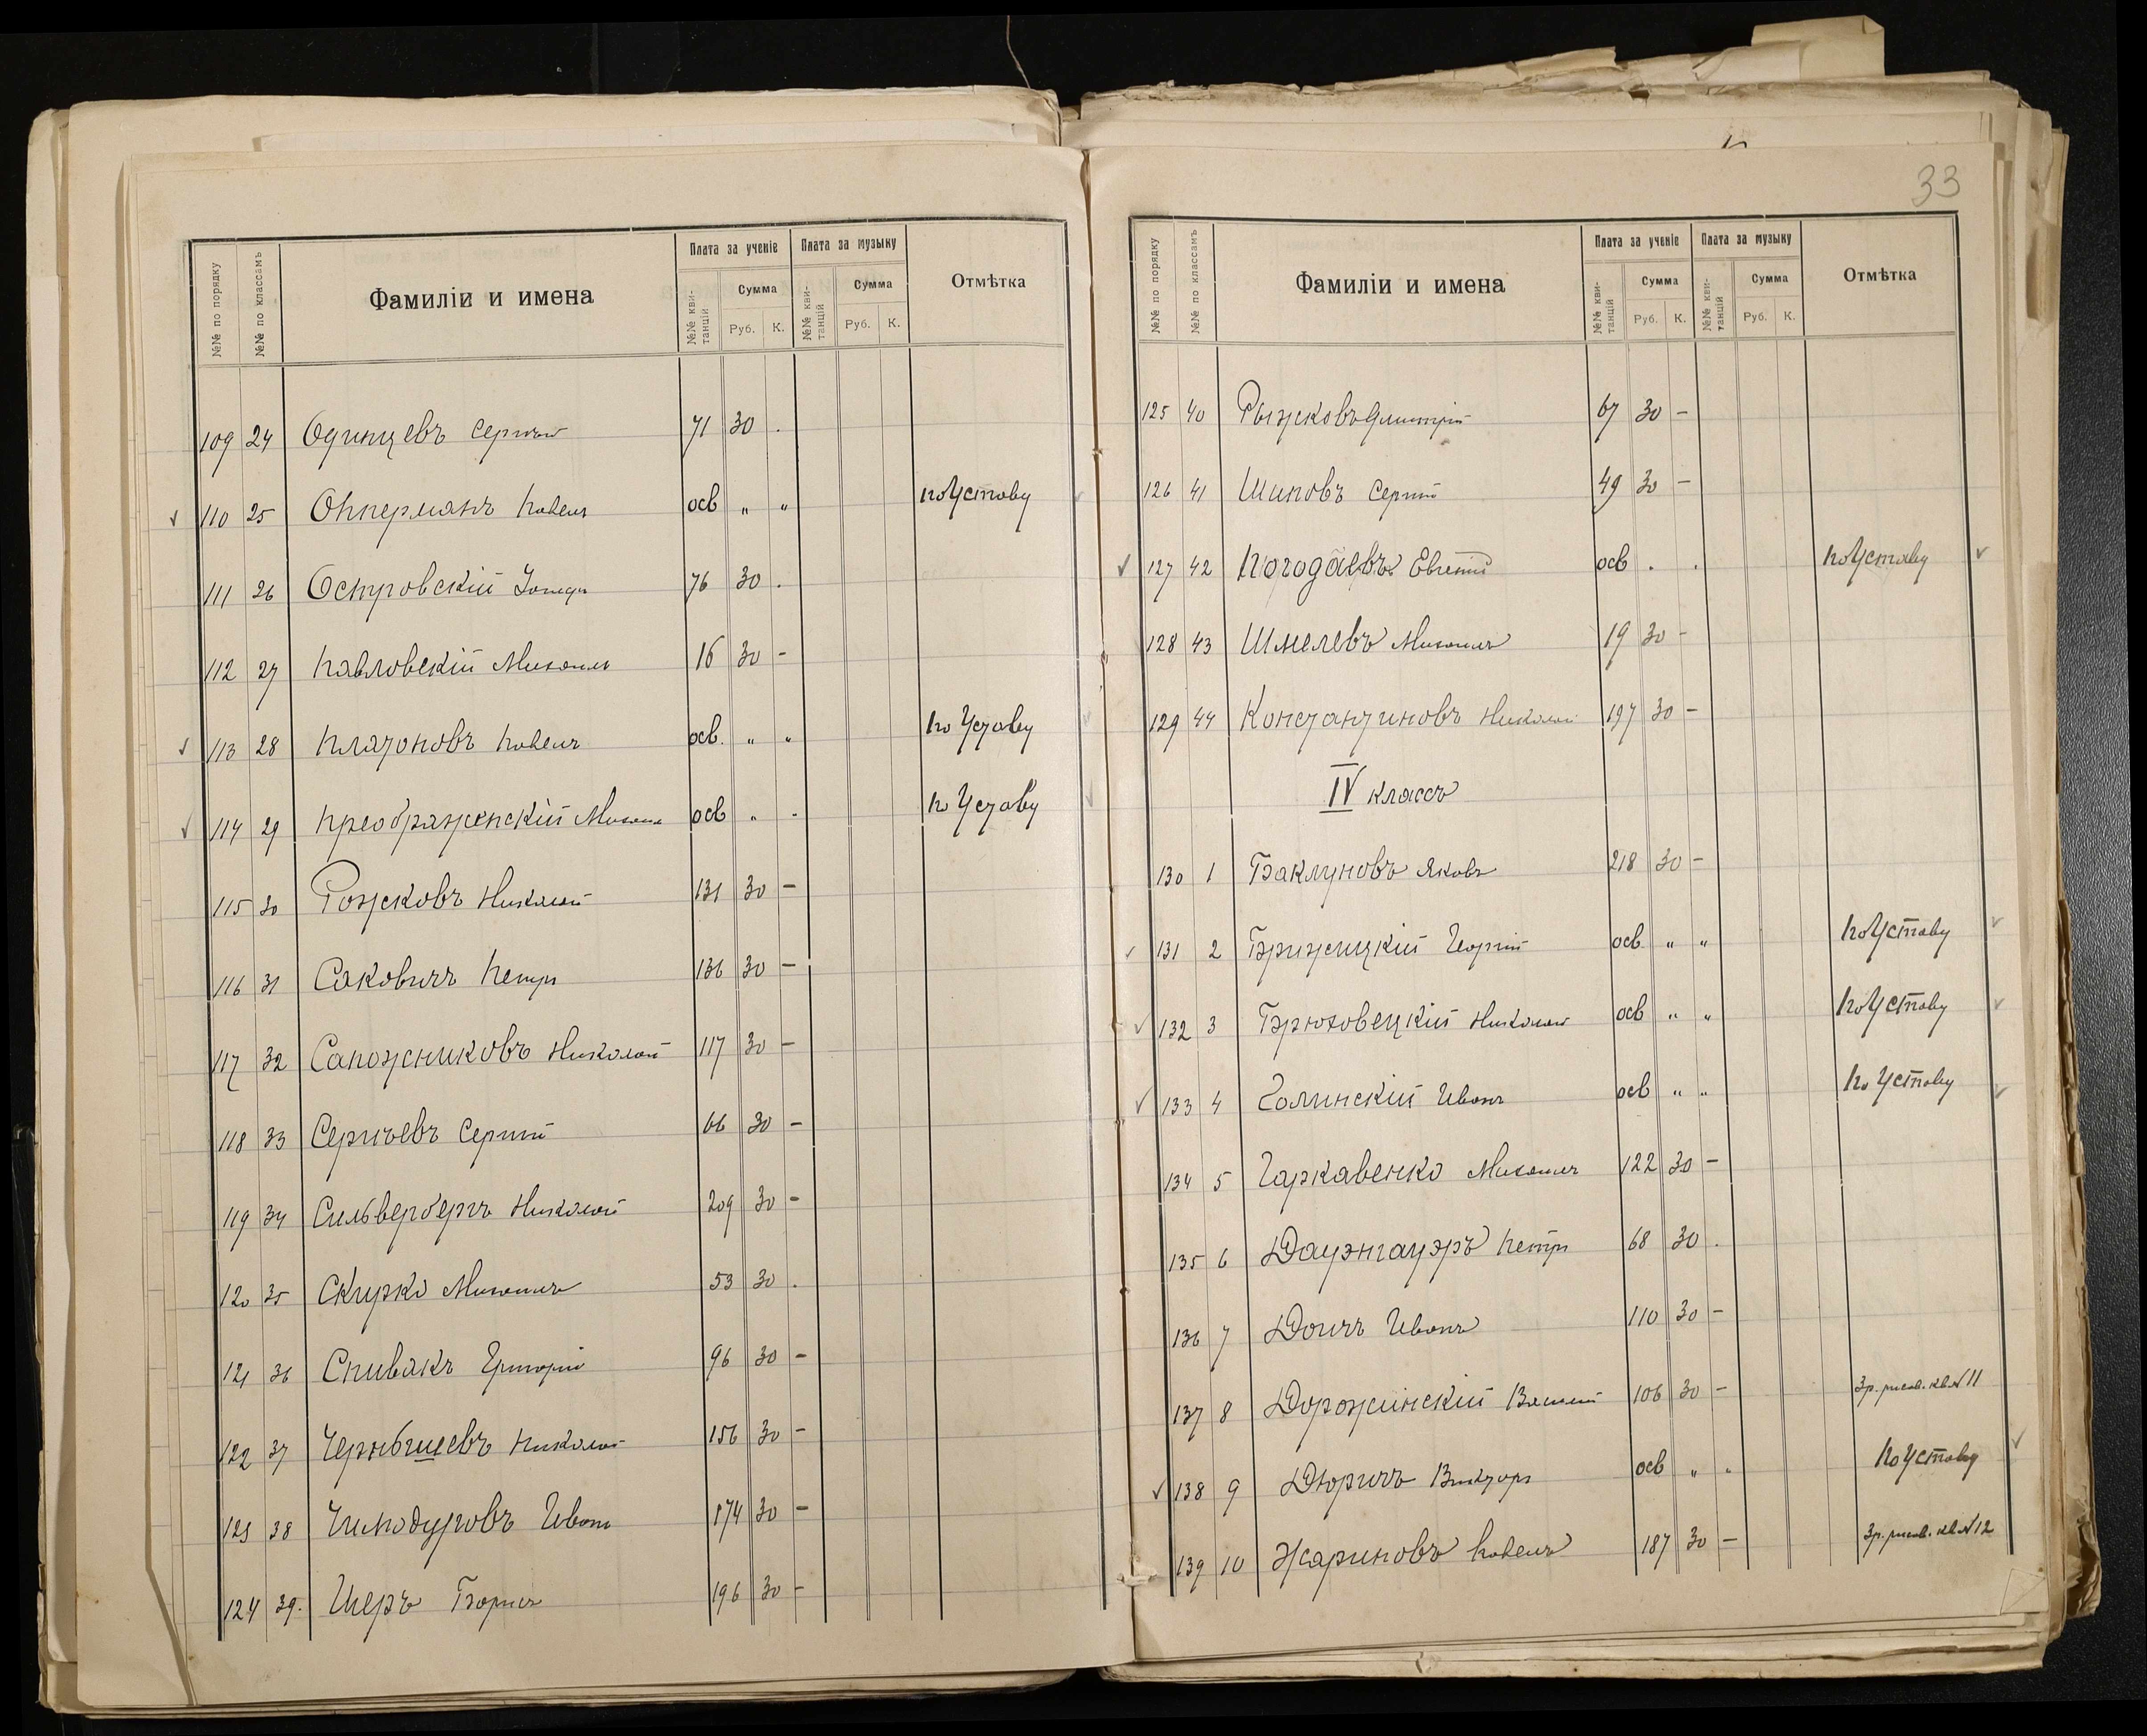 33
№№ по порядку №№ по классамъ Фамиліи и имена Плата за ученіе Плата за музыку Отмѣтка
№№ кви-танцій Сумма №№ кви-танцій Сумма
Руб. К. Руб. К.
109 24 Одинцевъ Сергѣй 71 30 .
110 25 Опперманъ Павелъ осв „ „ по Уставу
111 26 Островскій 76 30 .
112 27 Павловскій Михаилъ 16 30 –
113 28 Платоновъ Павелъ осв. „ „ по Уставу
114 29 Преображенскій Михаил осв „ - по Уставу
115 30 Рожсковъ Николай 131 30 –
116 31 Саковичъ Петръ 136 30 –
117 32 Сапожниковъ Николай 117 30 –
118 33 Сергѣевъ Сергѣй 66 30 –
119 34 Сильвербергъ Николай 209 30 –
120 35 Скирко Михаилъ 53 30 .
121 36 Спивакъ Григорій 96 30 –
122 37 Чернышевъ Николай 156 30 –
123 38 Иванъ 174 30 –
124 39. Шеръ Борисъ 196 30 –
№№ по порядку №№ по классамъ Фамиліи и имена Плата за ученіе Плата за музыку Отмѣтка
№№ кви-танцій Сумма №№ кви-танцій Сумма
Руб. К. Руб. К.
125 40 Рыжковъ Дмитрій 67 30 –
126 41 Шиповъ Сергѣй 49 30 –
127 42 Погодаевъ Евгеній осв . . по Уставу
128 43 Шмелевъ Михаилъ 19 30 –
129 44 Константиновъ Николай 197 30 –
IV классъ
130 1 Баклуновъ Яковъ 218 30 –
131 2 Брижицкій Георгій осв „ „ по Уставу
132 3 Брюховецкій Николай осв „ „ по Уставу
133 4 Голинскій Иванъ осв „ „ по Уставу
134 5 Гаркавенко Михаилъ 122 30 –
135 6 Дауэнгауэръ Петръ 68 30 .
136 7 Доичъ Иванъ 110 30 –
137 8 Дорожинскій Василій 106 30 – 3р. рисов. кв. № 11
138 9 Дюричъ Викторъ осв „ „ по Уставу
139 10 Жариновъ Павелъ 187 30 – 3р. рисов. кв. № 12